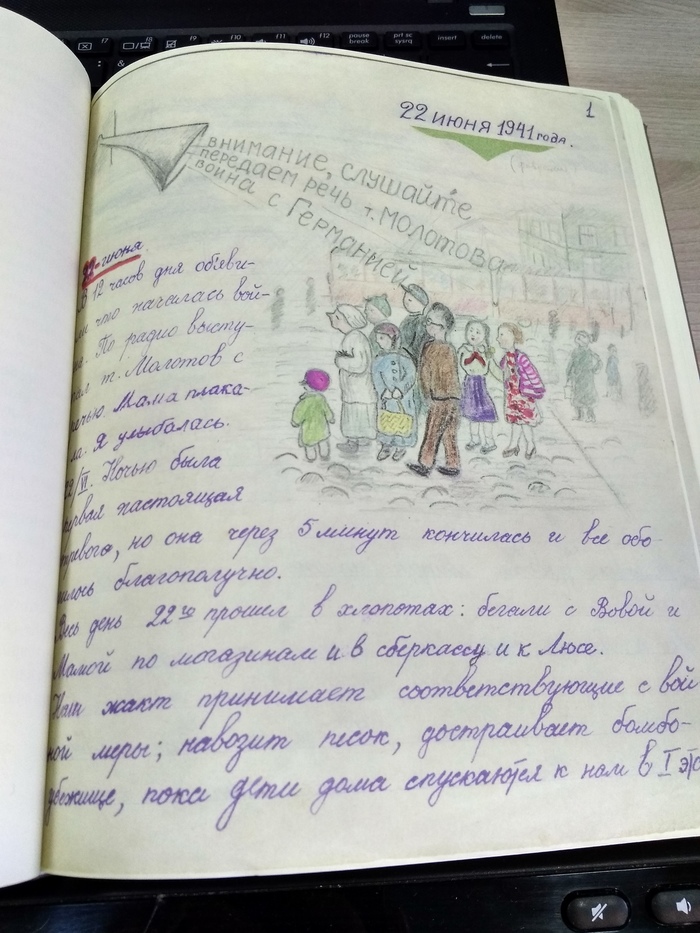 f7 f8 f9 f10 f11 f12 pause prt sc insert delete
break sysrq
&
1
22 июня 1941 года.
внимание, слушайте
передаем речь т. Молотова
война с Германией
22 июня
В 12 часов дня объяви-
ли что началась вой-
на. По радио высту-
пал т. Молотов с
речью. Мама плака-
ла. Я улыбалась.
22/VI. Ночью была
первая настоящая
тревога, но она через 5 минут кончилась и все обо-
шлось благополучно.
Весь день 22го прошел в хлопотах: бегали с Вовой и
Мамой по магазинам и в сберкассу и к Люсе.
Наш жакт принимает соответствующие с вой-
ной меры; навозит песок, достраивает бомбо-
убежище, пока дети дома спускаются к нам в I